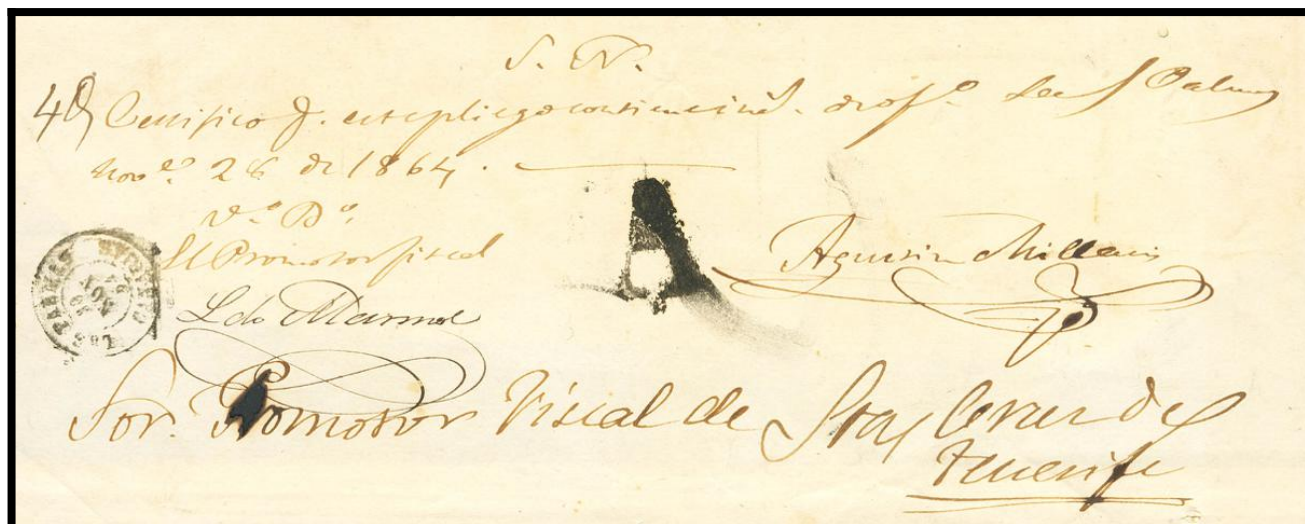 S. N.
Certifico q. este pliego contiene ind. de of.º Las Palmas
Nov.e 28 de 1864.
V.º B.º
El Promotor fiscal
Ldo Marmol
Agustin Millares
LAS PALMAS
NOV
Sor. Promotor Fiscal de Sta Cruz de
Tenerife